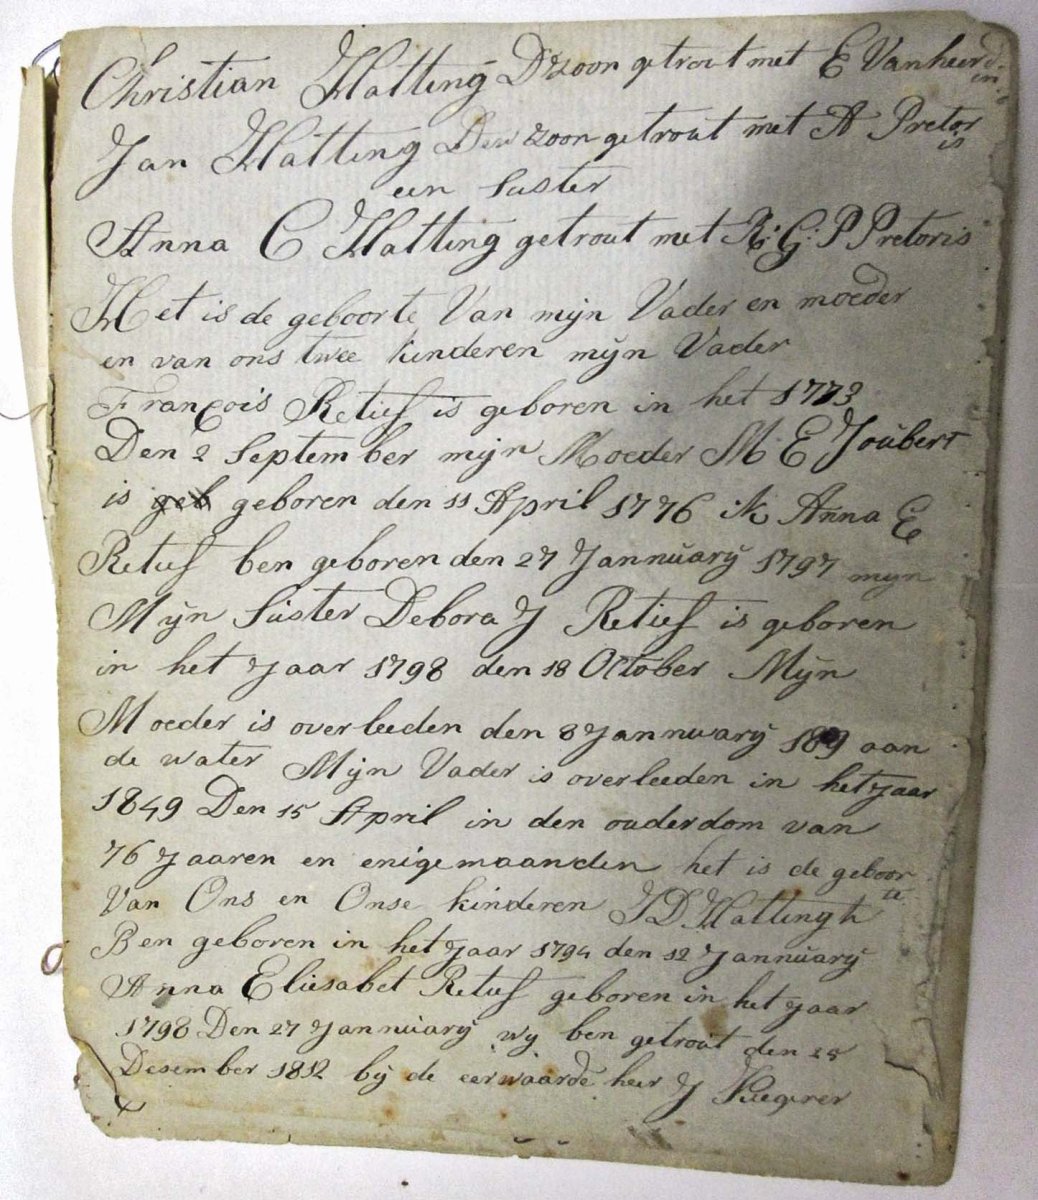 Christian Hatting Dzoon getrout met E Vanheerd
en
Jan Hatting Den zoon getrout met A Pretor
is
een Suster
Anna C Hatting getrout met R: G: P Pretoris
Het is de geboorte Van mijn Vader en moeder
en van ons twee kinderen mijn Vader
François Retief is geboren in het 1773
Den 2 September mijn Moeder M E Joubert
is geb geboren den 11 April 1776 ik Anna E
Retief ben geboren den 27 Jannuarij 1797 mijn
Mijn Suster Debora J Retief is geboren
in het Jaar 1798 den 18 October Mijn
Moeder is overleeden den 8 Jannuarij aan
de water Mijn Vader is overleeden in het Jaar
1849 Den 15 April in den ouderdom van
76 Jaaren en enige maanden het is de geboor
te
Van Ons en Onse kinderen J D Hattingh
Ben geboren in het Jaar 1794 den 12 Jannuarij
Anna Eliesabet Retief geboren in het Jaar
1798 Den 27 Jannuarij wy ben getrout den 25
Desember 1812 bij de eerwaarde heer J